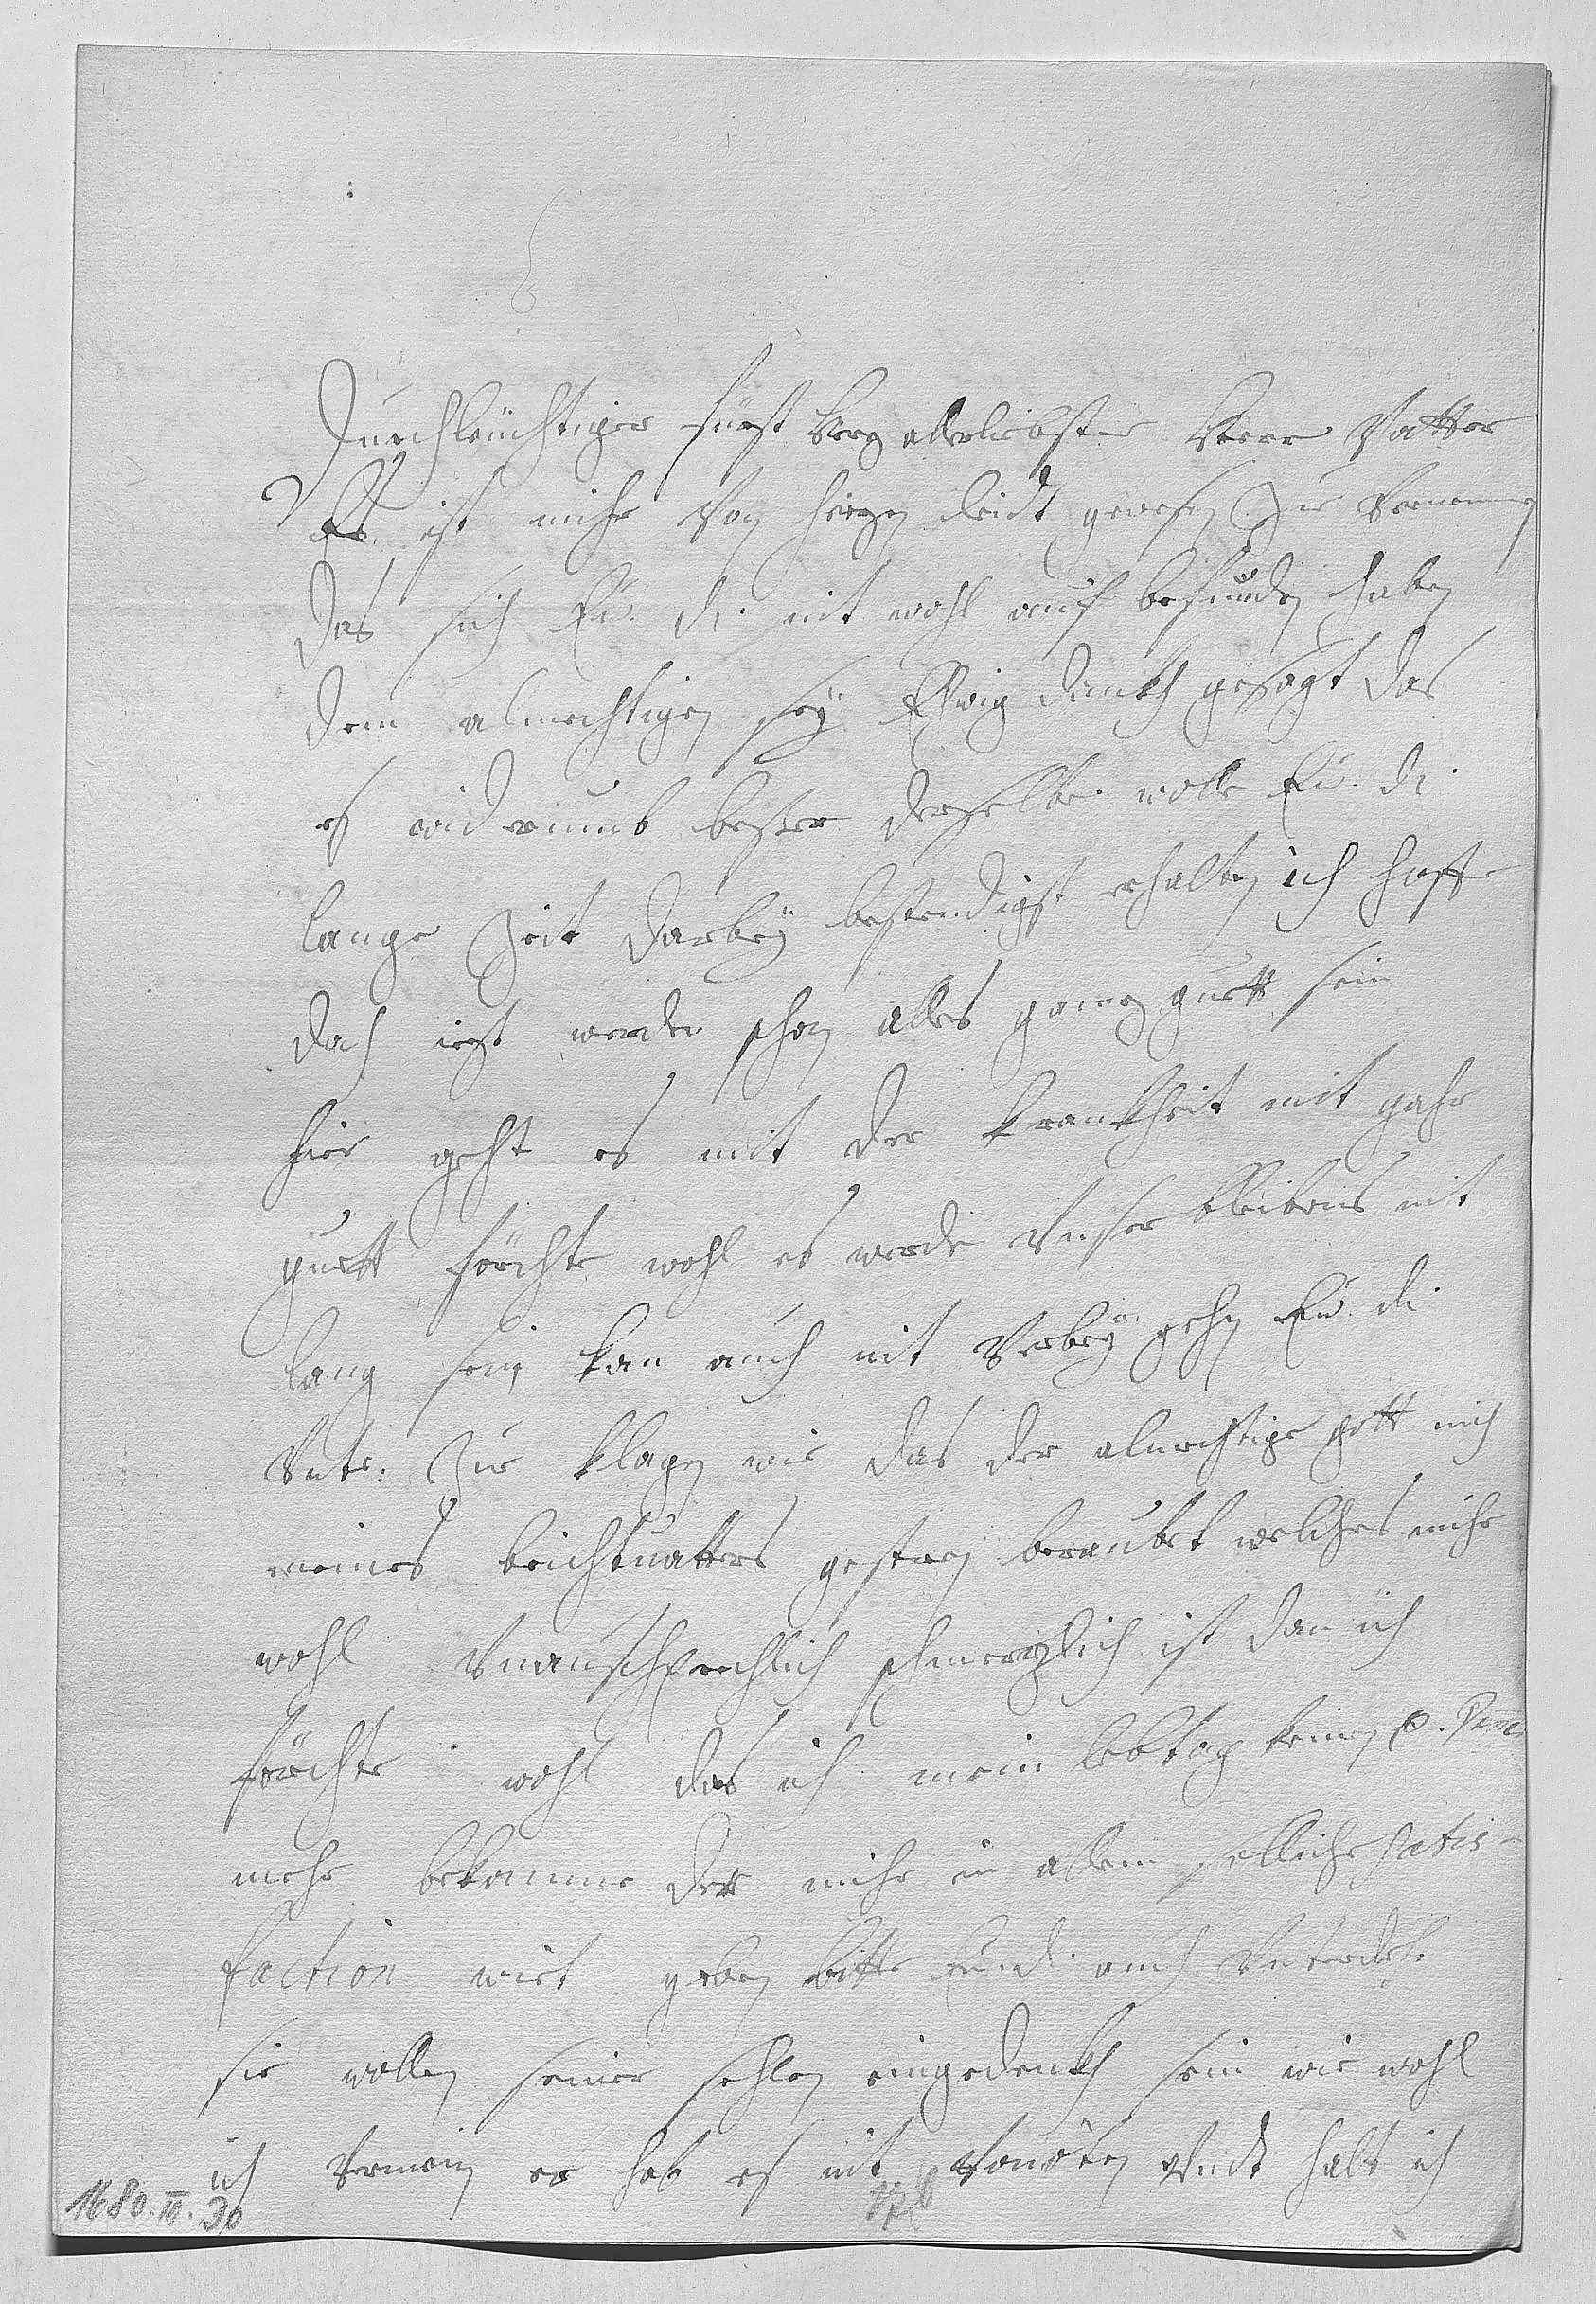 Durchleüchtiger fürst herz allerliebster Herr Vatter
Es ist mihr Von herzen leidt gewesen Zue Vernemen
das sich Eü. di nit wohl auf befunden haben
dem almechtigen seÿ Ewig dankh gesagt das
es widerumb besser derselbe wolle Eü. di
lange Zeit darbeÿ bestendigst erhalten ich hoffe
das iezt werde schon alles ganz guett sein
hier geht es mit der krankheit nit gahr
guett förchte wohl es werde Unser bleibens nit
lang sein kan auch nit Vorbeÿ gehen Eü. di
Unte: Zue klagen wie das der almechtige gott mich
meines beichtuatters gestern beraubet welches mihr
wohl Unausprechlich schmerzlich ist dan ich
förchte wohl das ich mein lebtag keinen P.
mehr bekomme der mihr in allem solliche satis-
faction wirt geben bitte Eü. di auch
sie wollen seiner sehlen eingedenkh sein wie wohl
ich Vermein er hab es nit Vonöten Undt halt ich
1680.III.30